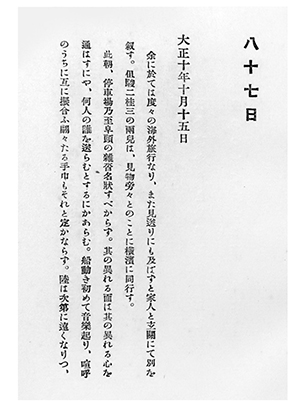 八十七日
大正十年十月十五日
余に於ては度々の海外旅行なり、また見送りにも及ばずと家人と玄關にて別を
叙す。但駿二桂三の兩兒は、見物旁々とのことに橫濱に同行す。
此朝、停車場乃至阜頭の雜沓名狀すべからず。其の異れる面は其の異れる心を
通はすにや、何人の誰を送らむとするにかあらむ。船動き初めて音樂起り、喧呼
のうちに互に振合ふ翩々たる手巾もそれと定かならず。陸は次第に遠くなりつ、